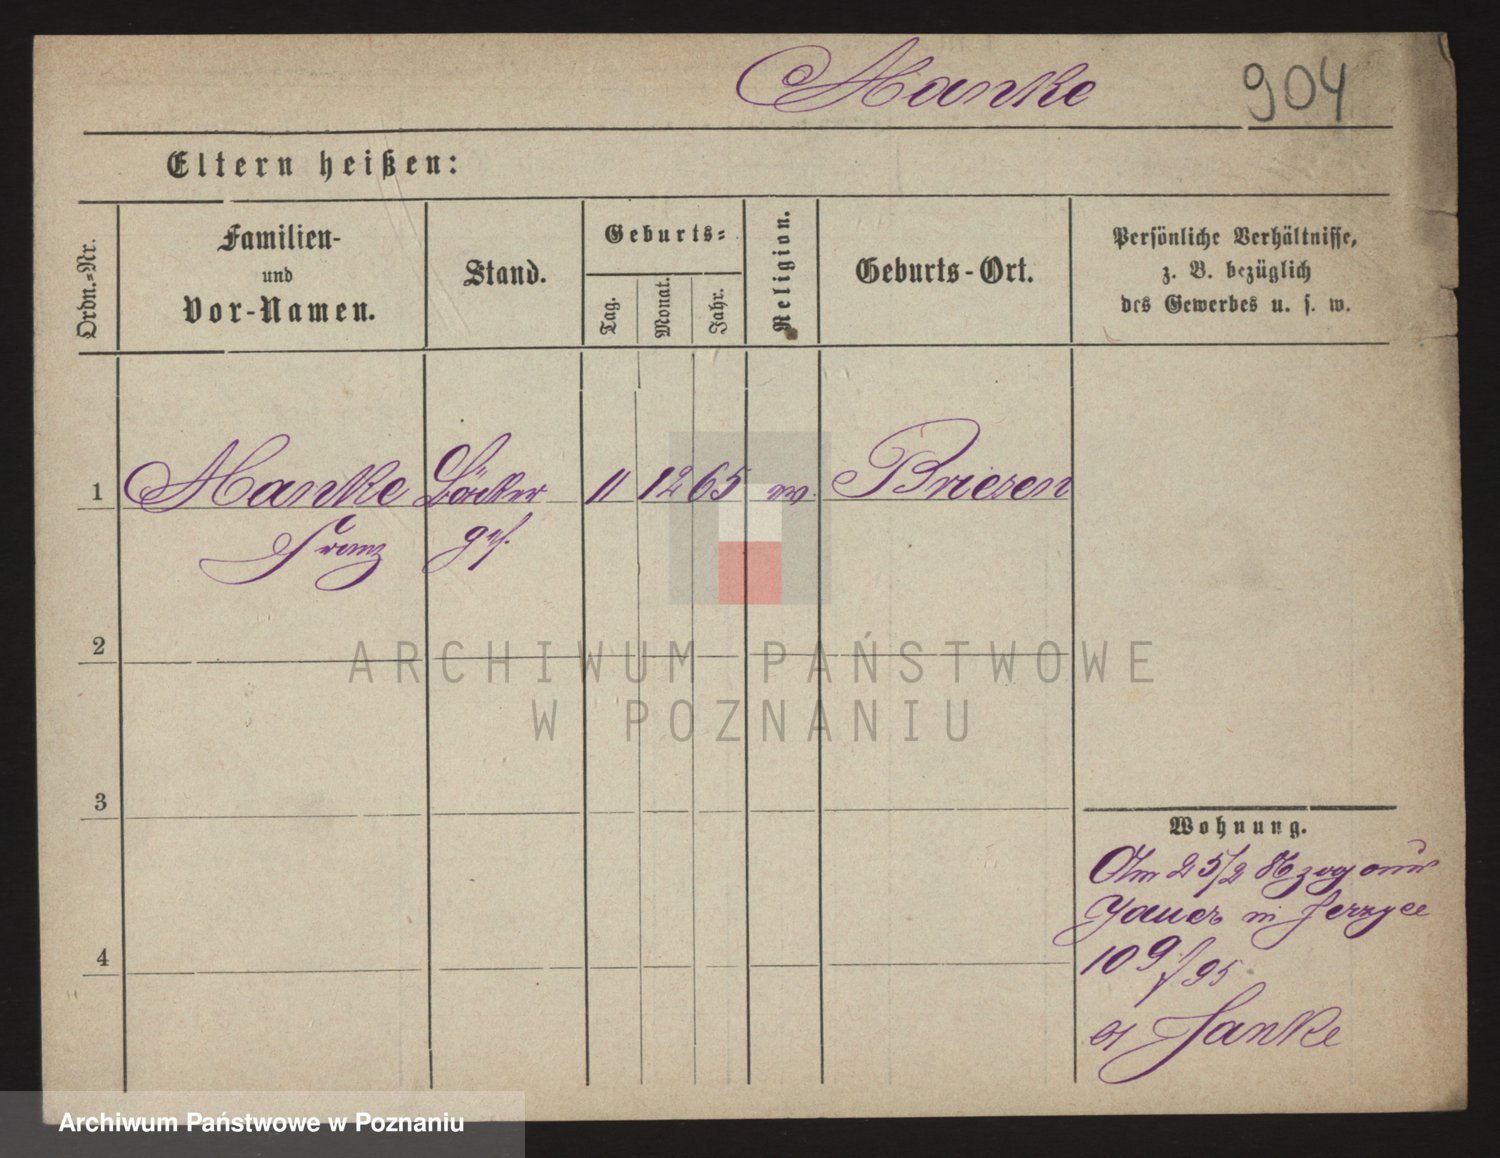 Manke 904
Eltern heißen:
Ordn.-Nr.
Familien-
und
Vor-Namen.
Stand.
Geburts-
Tag.
Monat.
Jahr.
Religion.
Geburts-Ort.
Persönliche Verhältnisse,
z. B. bezüglich
des Gewerbes u. s. w.
1 Manke Bäcker 11 12 65 Briesen
Franz ges.
2
3
4
Wohnung.
Am 25/2 zog aus
Jauer in
109/95
Janke
ARCHIWUM PAŃSTWOWE
W POZNANIU
Archiwum Państwowe w Poznaniu